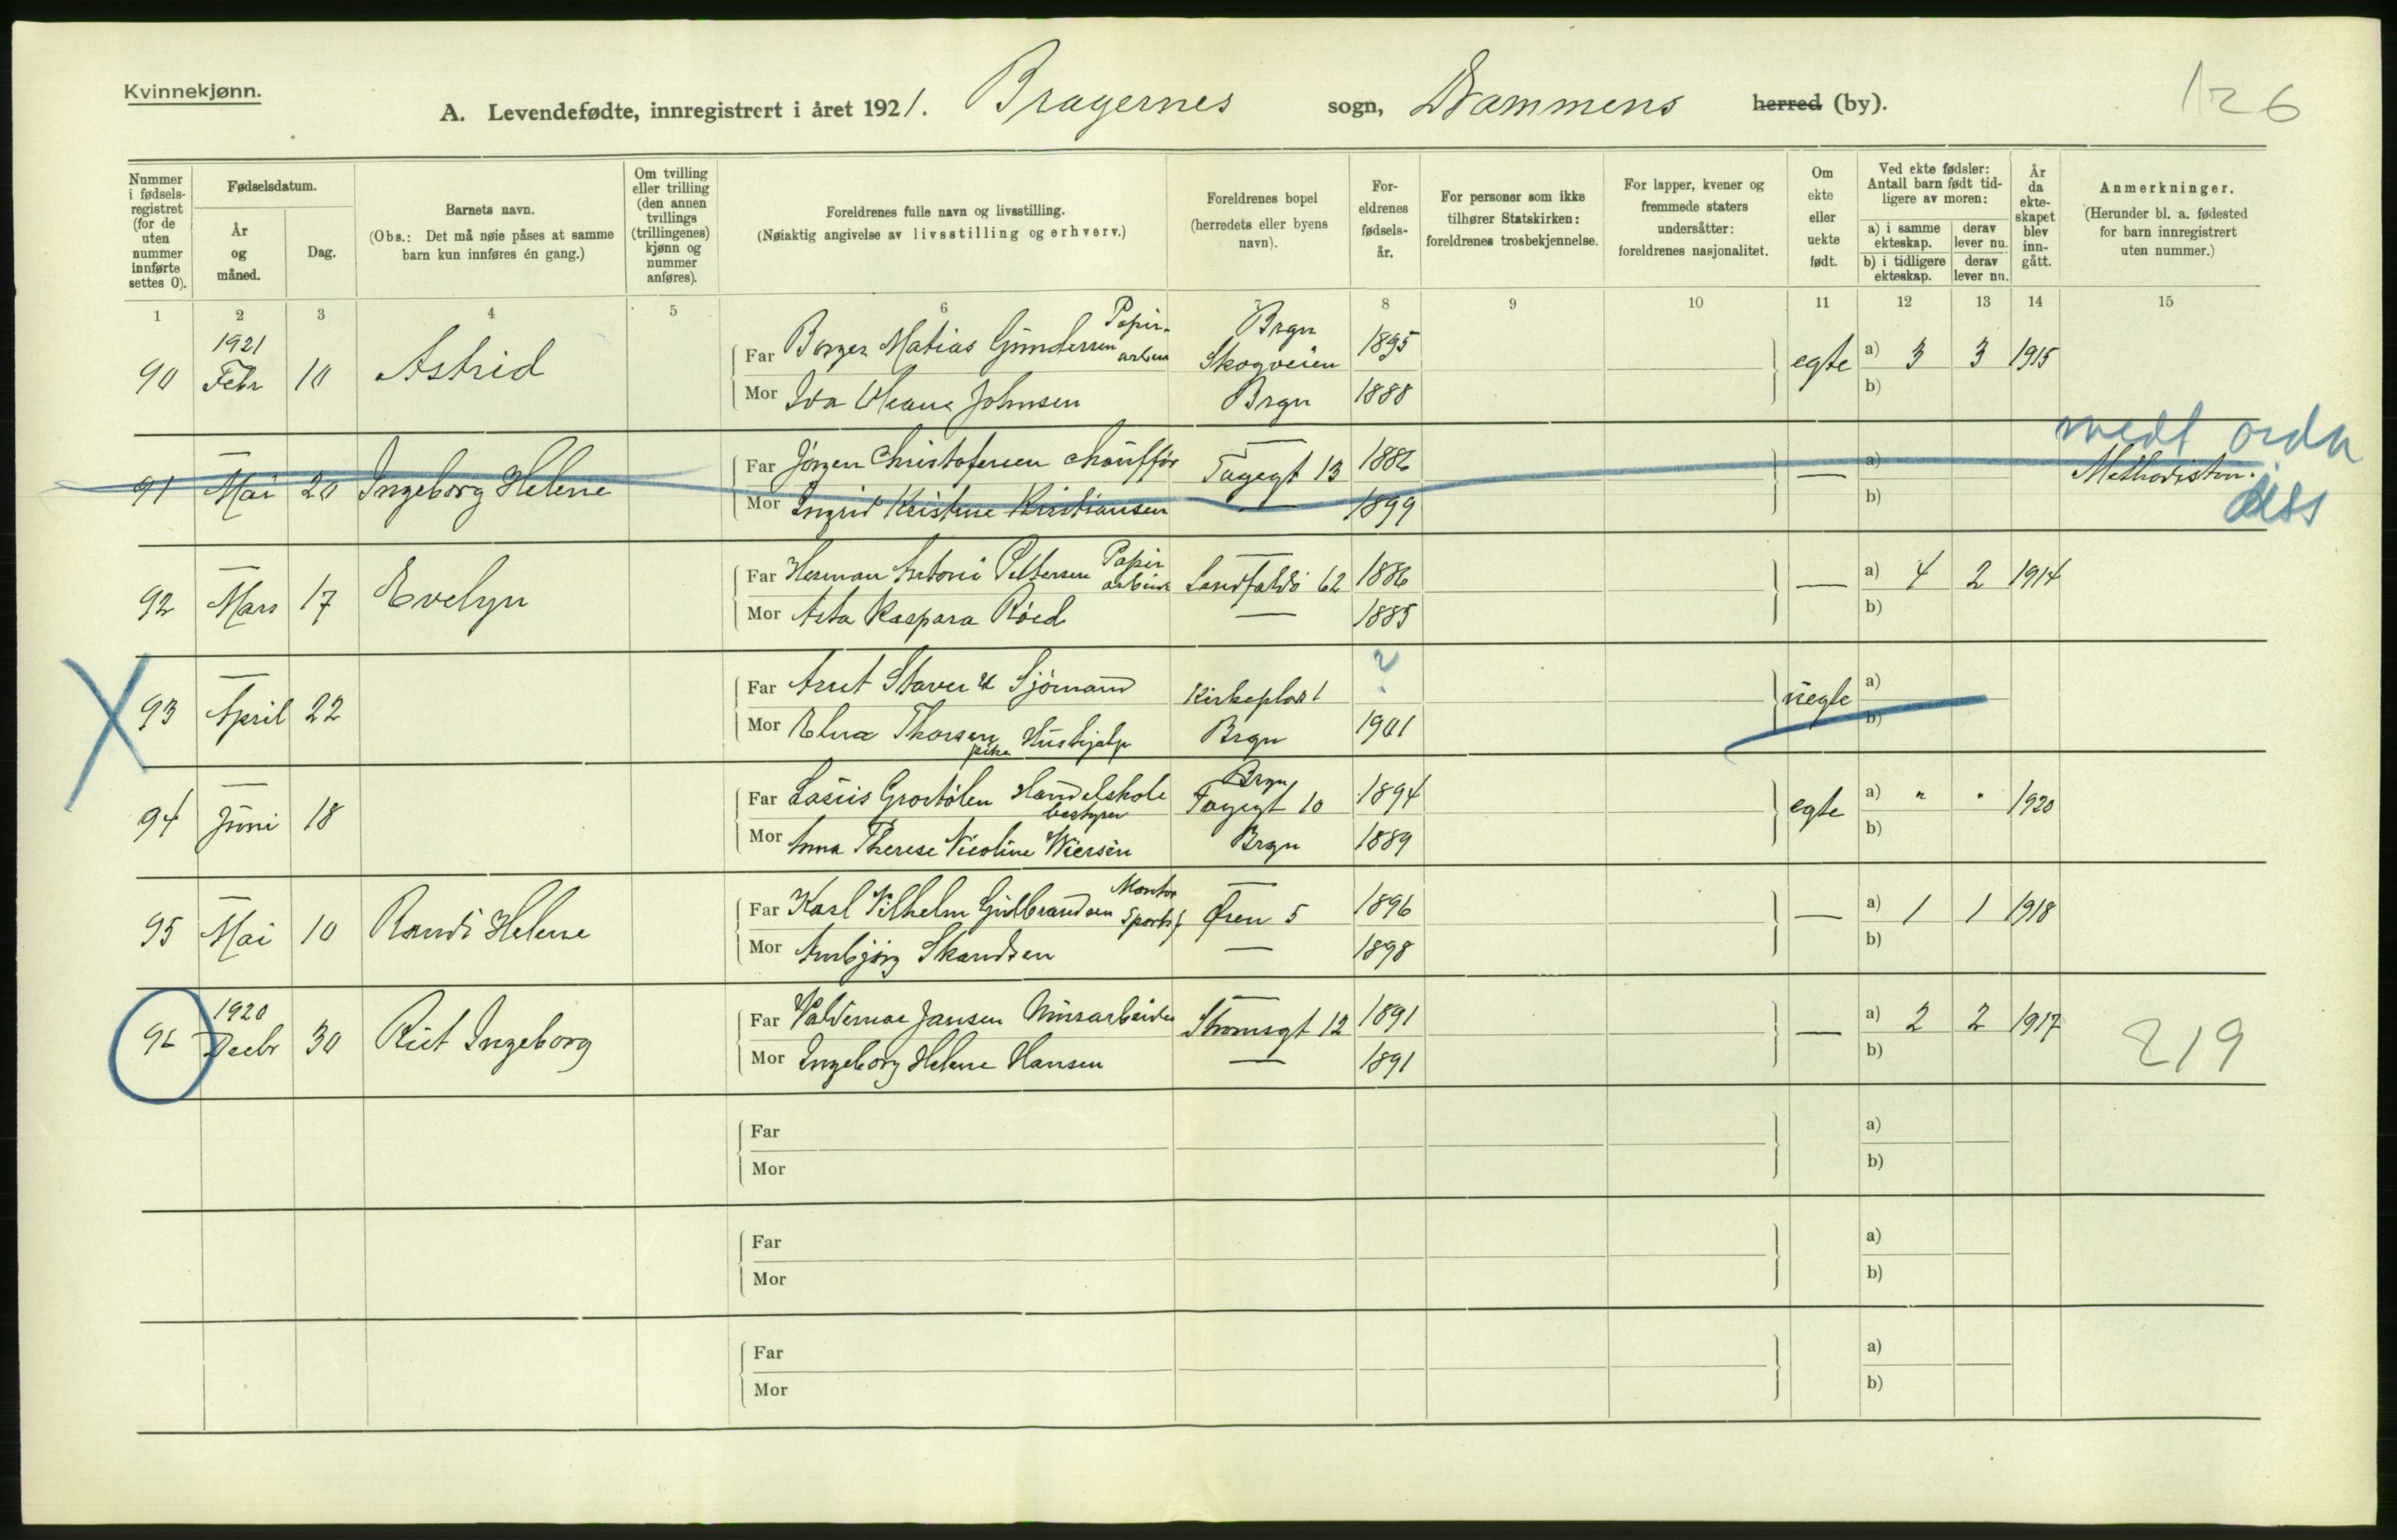 Kvinnekjønn.
A. Levendefødte, innregistrert i året 1921. Bragernes sogn, Drammens herred (by).
126
Nummer i fødselsregistret (for de uten nummer innførte settes 0).
Fødselsdatum.
År og måned.
Dag.
Barnets navn.
(Obs.: Det må nøie påses at samme barn kun innføres én gang.)
Om tvilling eller trilling (den annen tvillings (trillingenes) kjønn og nummer anføres).
Foreldrenes fulle navn og livsstilling.
(Nøiaktig angivelse av livsstilling og erhverv.)
Foreldrenes bopel
(herredets eller byens navn).
Foreldrenes fødselsår.
For personer som ikke tilhører Statskirken: foreldrenes trosbekjennelse.
For lapper, kvener og fremmede staters undersåtter: foreldrenes nasjonalitet.
Om ekte eller uekte født.
Ved ekte fødsler: Antall barn født tidligere av moren:
a) i samme ekteskap.
derav lever nu.
b) i tidligere ekteskap.
derav lever nu.
År da ekteskapet blev inngått.
Anmerkninger.
(Herunder bl. a. fødested for barn innregistrert uten nummer.)
1 2 3 4 5 6 7 8 9 10 11 12 13 14 15
90 1921 Febr 10 Astrid
Far Borger Matias Gundersen Papirarbeid Brgn Skogveien 1895 egte a) 3 3 1915
Mor Johnsen Brgn 1888 b)
91 — Mai 20 Ingeborg Helene
Far Jørgen Christofersen Chauffør — Tagegt 13 1886 — a) Methodisten.
Mor Ingrid Kristine Kristiansen — 1899 b)
medt ordn
diss
92 — Mars 17 Evelyn
Far Herman Antoni Pettersen Papirarbeid — Landfaldø 62 1886 — a) 4 2 1914
Mor Asta Kaspara Røed — 1885 b)
X 93 — April 22
Far Sjømand Kirkeplas 1 ? uegte a)
Mor Thorsen pike Hushjelp Brgn 1901 b)
94 — Juni 18
Far Handelskole bestyrer Brgn Tagegt 10 1894 egte a) " " 1920
Mor Anna Therese Nicoline Brgn 1889 b)
95 — Mai 10 Randi Helene
Far Karl Vilhelm Gulbrandsen Montør Sportsf — Øren 5 1896 — a) 1 1 1918
Mor Anbjørg Skandsen — 1898 b)
96 1920 Decbr 30 Rut Ingeborg
Far Valdemar Jansen Murarbeider — Strømsgt 12 1891 — a) 2 2 1917
Mor Ingeborg Helene Hansen — 1891 b)
219
Far a)
Mor b)
Far a)
Mor b)
Far a)
Mor b)